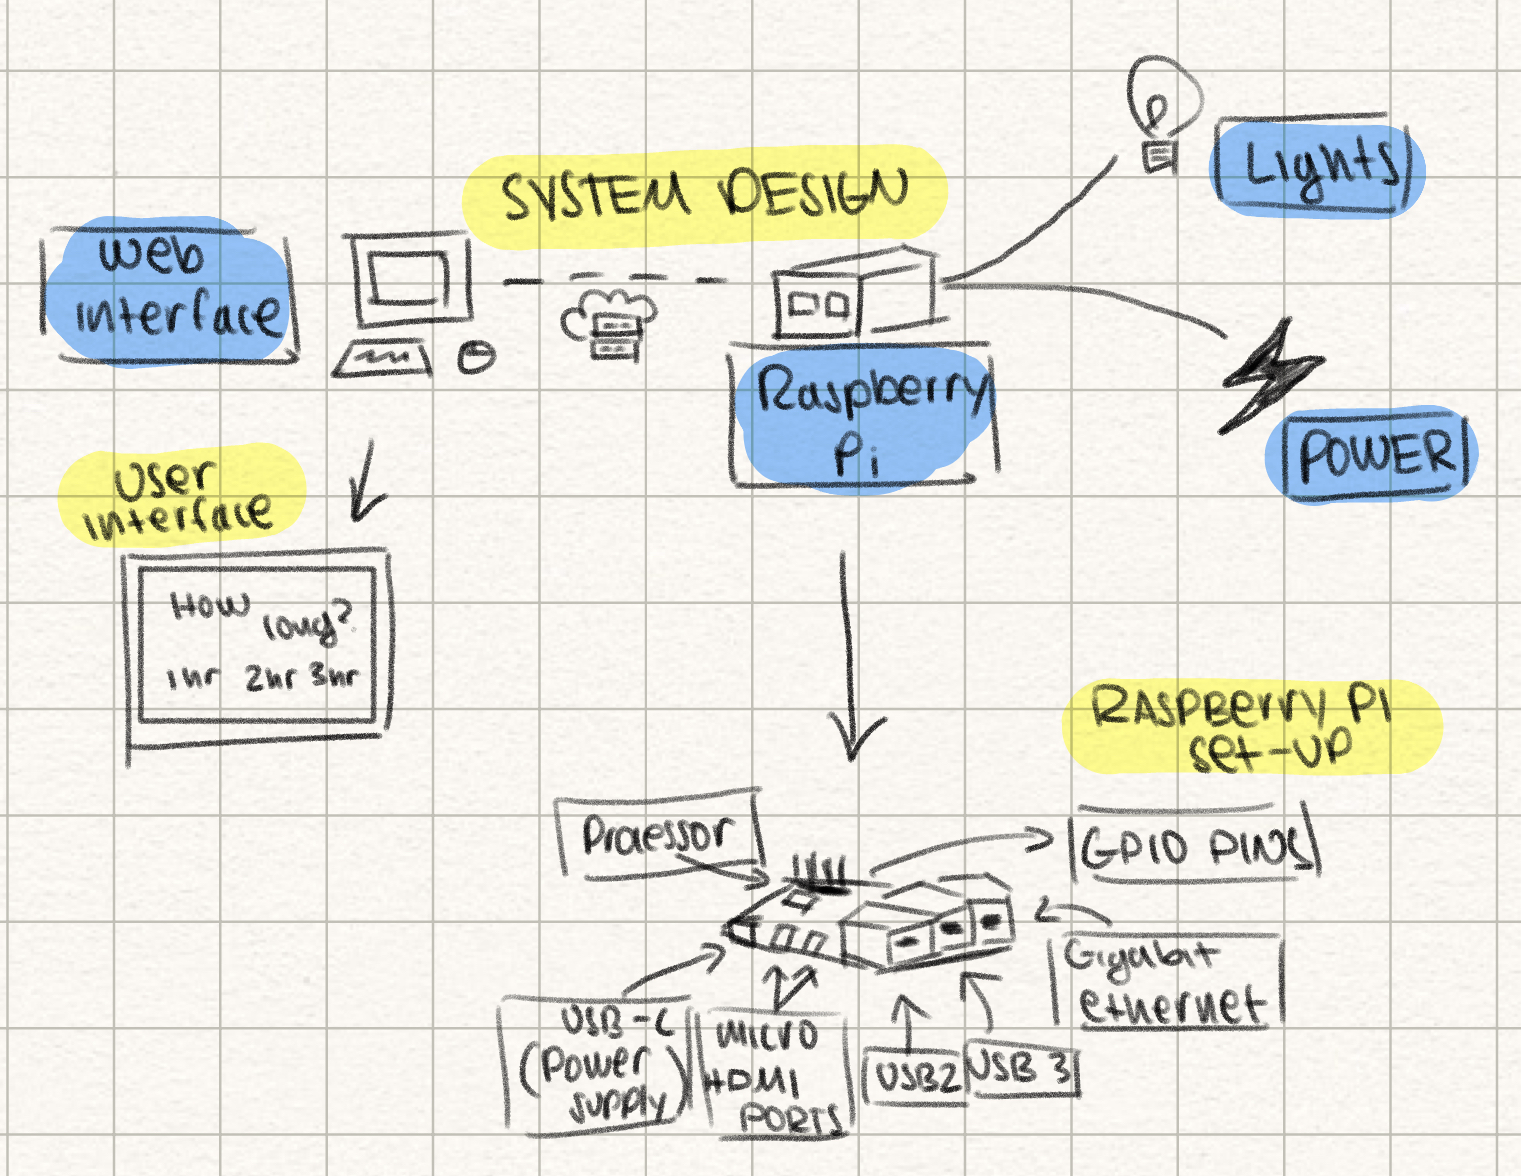 SYSTEM DESIGN
Lights
Web
interface
Raspberry
Pi
POWER
User
interface
How
long?
1hr 2hr 3hr
RASPBerry PI
set-UP
Processor
GPIO PINS
Gigabit
ethernet
USB-C
(Power
supply)
MICRO
HDMI
PORTS
USB2
USB 3